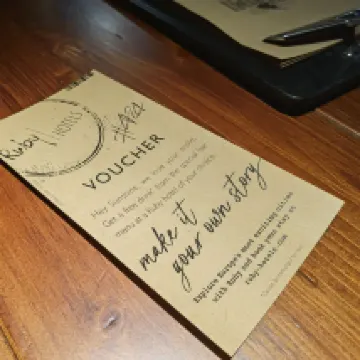 Ruby HOTELS
#424
VOUCHER
Hey Someone, we love your story.
Get a free drink from the special bar
menu at a Ruby hotel of your choice.
make it
your own story
Explore Europe's most exciting cities
with Ruby and book your stay at
ruby-hotels.com